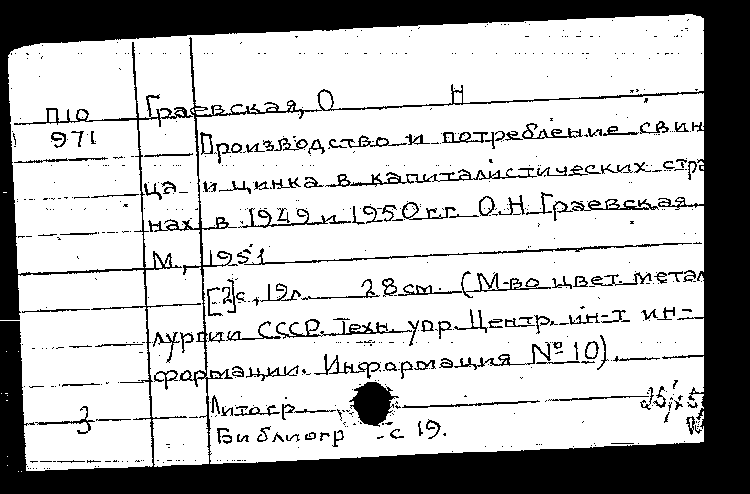 П10 Граевская, О Н
971 Производство и потребление свин
ца и цинка в капиталистических стра
нах в 1949 и 1950 г.г. О.Н. Граевская.
М., 1951
[2]с., 19л. 28см. (М-во цвет. метал
лургии СССР. Техн. упр. Центр. ин-т ин-
формации. Информация №10).
Литогр.
3 Библиогр с 19.